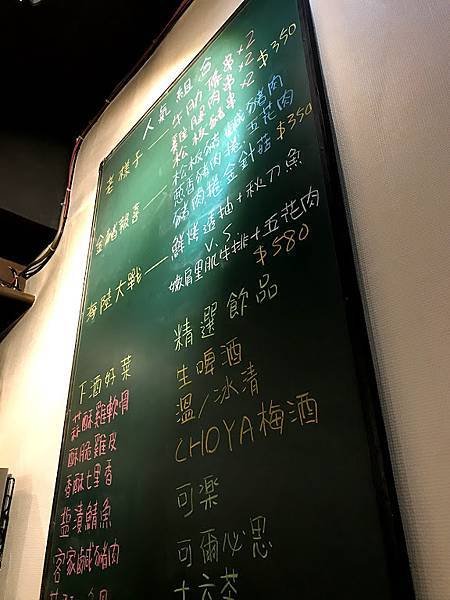 人氣組合
老樣子 — 牛肋條串×2
雞腿肉串×2
松板豬串×2 $350
金豬報喜 — 松板豬鹹豬肉
蔥香豬肉捲五花肉
豬肉捲金針菇 $350
海陸大戰 — 鮮烤透抽+秋刀魚
V.S
嫩肩里肌牛排+五花肉
$580
下酒好菜
蒜酥雞軟骨
酥脆雞皮
香酥七里香
鹽漬鯖魚
客家鹹豬肉
精選飲品
生啤酒
溫/冰清
CHOYA梅酒
可樂
可爾必思
十六茶